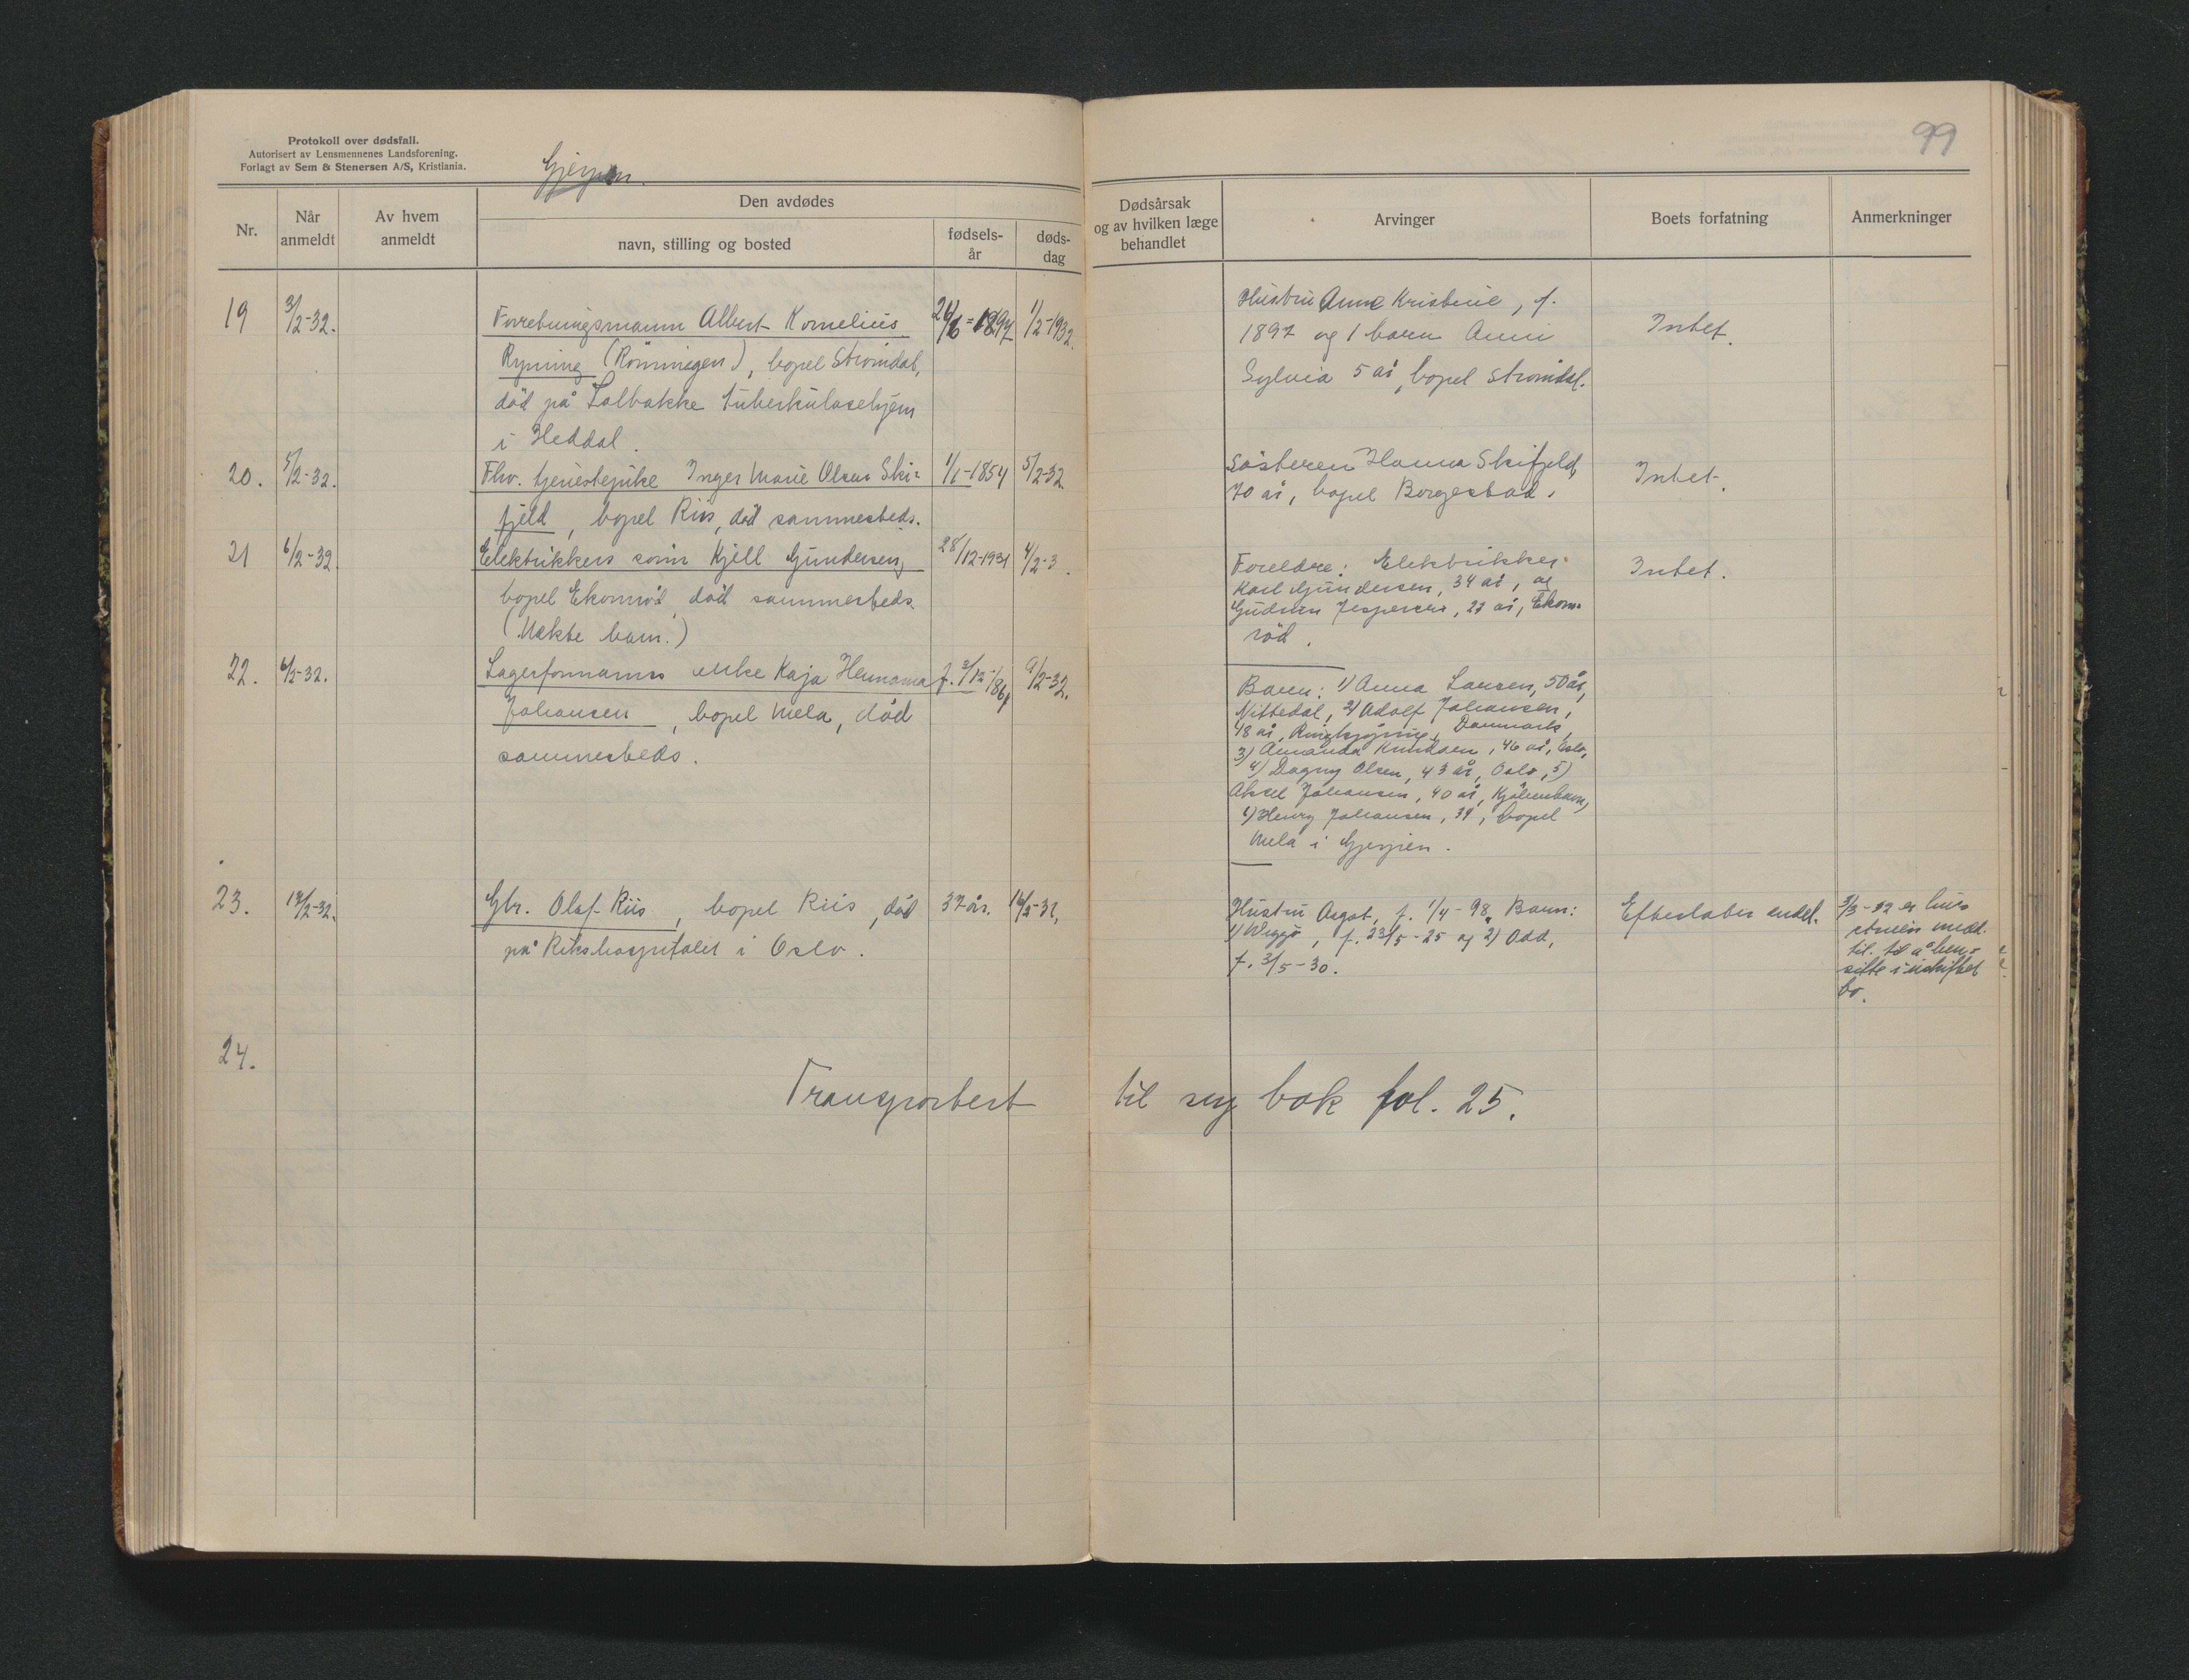 Protokoll over dødsfall.
Autorisert av Lensmennenes Landsforening.
Forlagt av Sem & Stenersen A/S, Kristiania.
Gjerpen.
99
Nr.
Når anmeldt
Av hvem anmeldt
Den avdødes
navn, stilling og bosted
fødsels-
år
døds-
dag
Dødsårsak
og av hvilken læge
behandlet
Arvinger
Boets forfatning
Anmerkninger
19 3/2-32. Forretningsmann Albert Kornelius 26/6-1897 1/2-1932.
Ryning (Rönningen), bopel Strömdal,
död på Solbakke tuberkulosehjem
i Heddal.
Hustru Anne Kristine, f.
1897 og 1 barn Anni
Sylvia 5 år, bopel Strömdal.
Intet.
20. 5/2-32. Fhv. tjenestepike Inger Marie Olsen Ski- 1/1-1854 5/2-32.
fjeld, bopel Riis, död sammesteds.
Søsteren Hanna Skifjeld,
70 år, bopel Borgestad.
Intet.
21 6/2-32. Elektrikkers sönn Kjell Gundersen, 28/12-1931 4/2-3.
bopel Ekornröd, död sammesteds.
(Ækte barn.)
Foreldre: Elektrikker
Karl Gundersen, 34 år, og
Gudrun Jespersen, 27 år, Ekorn-
röd.
Intet.
22. 9/2-32. Lagerformanns enke Kaja Hermana f. 3/12-1861 9/2-32.
Johansen, bopel Mela, död
sammesteds.
Barn: 1) Anna Larsen, 50 år,
Nittedal, 2) Adolf Johansen,
48 år, Ringkjöping, Danmark,
3) Amanda Knudsen, 46 år, Oslo,
4) Dagny Olsen, 43 år, Oslo, 5)
Aksel Johansen, 40 år, Kjöbenhavn,
6) Henry Johansen, 39, bopel
Mela i Gjerpen.
23. 17/2-32. Gbr. Olaf Riis, bopel Riis, död 37 år. 14/2-32.
på Rikshospitalet i Oslo.
Hustru Asgot, f. 1/4-98. Barn:
1) Viggo, f. 23/5-25 og 2) Odd,
f. 3/5-30.
Efterlater endel.
3/3-32 er hus
struen medd.
til. til å hen-
sitte i uskiftet
bo.
24.
Transportert til ny bok fol. 25.